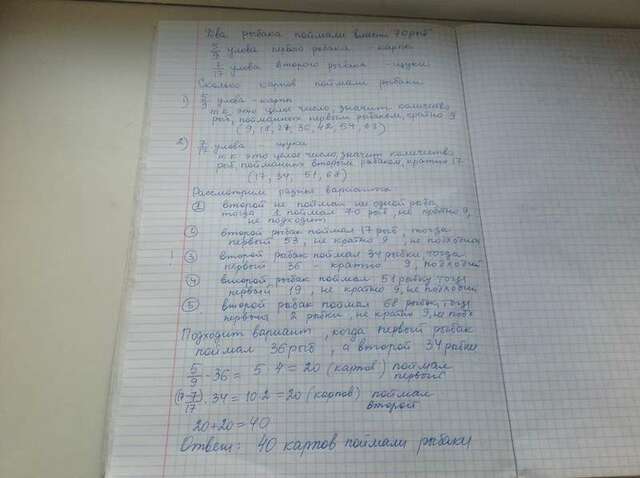 Два рыбака поймали вместе 70 рыб
5/9 улова первого рыбака - карпы
7/17 улова второго рыбака - щуки
Сколько карпов поймали рыбаки
1) 5/9 улова - карпы
т.к это целое число, значит количество
рыб, пойманных первым рыбаком, кратно 9
(9, 18, 27, 36, 42, 54, 63)
2) 7/17 улова - щуки
т к это целое число, значит количество
рыб, пойманных вторым рыбаком, кратно 17
(17, 34, 51, 68)
Рассмотрим разные варианты
1 второй не поймал ни одной рыбы,
тогда 1 поймал 70 рыб, не кратно 9,
не подходит
2 второй рыбак поймал 17 рыб, тогда
первый 53, не кратно 9, не подходит
3 второй рыбак поймал 34 рыбы, тогда
первый 36 - кратно 9, подходит
4 второй рыбак поймал 51 рыбу, тогда
первый 19, не кратно 9, не подходит
5 второй рыбак поймал 68 рыбы, тогда
первый 2 рыбки, не кратно 9, не подх
Подходит вариант, когда первый рыбак
поймал 36 рыб, а второй 34 рыбки
5/9 · 36 = 5 · 4 = 20 (карпов) поймал
первый
(17-7)/17 · 34 = 10·2 = 20 (карпов) поймал
второй
20+20 = 40
Ответ: 40 карпов поймали рыбаки